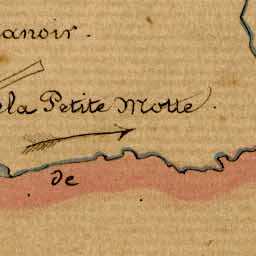 anoir.
la Petite Motte.
de